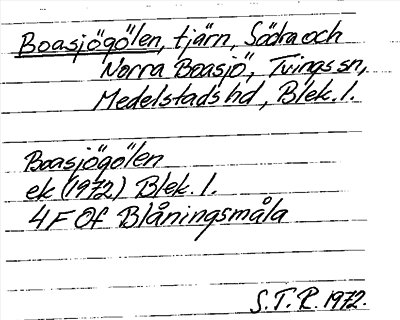 Boasjögölen, tjärn, Södra och
Norra Boasjö, Tvings sn,
Medelstads hd, Blek. l.
Boasjögölen
ek (1972) Blek. l.
4F 0f Blåningsmåla
S.T.R. 1972.